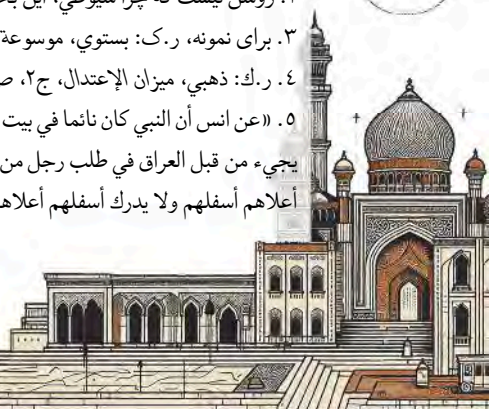 ۱. روشن نیست که چرا سیوطی، این
۳. برای نمونه، ر.ک: بستوي، موسوعة
٤. ر.ك: ذهبي، ميزان الإعتدال، ج۲، ص
٥. «عن انس أن النبي كان نائما في بيت
يجيء من قبل العراق في طلب رجل من
أعلاهم أسفلهم ولا يدرك أسفلهم أعلاهم